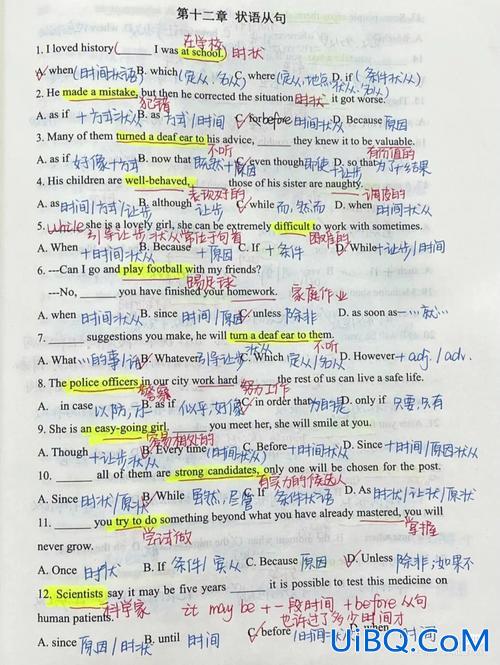 第十二章 状语从句
在学校
1. I loved history ( ______ I was at school. 时状
A. when (时间状语) B. which (定从、名从) C. where (定从, D. if (条件状从)
2. He made a mistake, but then he corrected the situation 时状 it got worse.
犯错
A. as if +方式状从 B. as 方式/时间 C. before 时间状从 D. Because 原因
3. Many of them turned a deaf ear to his advice, ______ they knew it to be valuable.
不听 有价值的
A. as if 好像+方式 B. now that 既然+原因 C. even though 即使+让步 D. so that 为了+结果
4. His children are well-behaved, ______ those of his sister are naughty.
表现好的 调皮的
A. as 时间/方式/让步 B. although 让步 C. while 而,然而 D. when 时间状从
5. while she is a lovely girl, she can be extremely difficult to work with sometimes.
引导让步状从常位于句首 困难的
A. When +时间状从 B. Because +原因 C. If +条件 D. While +让步/时间
6. ---Can I go and play football with my friends?
踢足球
---No, ______ you have finished your homework. 家庭作业
A. when 时间状从 B. since 时间/原因 C. unless 除非 D. as soon as 一…就…
7. ______ suggestions you make, he will turn a deaf ear to them.
不听
A. What …的事/话 B. Whatever 引导让步状从 C. Which 定从/名从 D. However + adj. / adv.
8. The police officers in our city work hard ______ the rest of us can live a safe life.
警察 努力工作
A. in case 以防,万一 B. as if 似乎,好像 C. in order that 为目的 D. only if 只要,只有
9. She is an easy-going girl, ______ you meet her, she will smile at you.
容易相处的
A. Though +让步状从 B. Every time (时间) C. Before +时间状从 D. Since +时间/原因状从
10. ______ all of them are strong candidates, only one will be chosen for the post.
有实力的候选人
A. Since 时状/原状 B. While 虽然,尽管 C. If 条件状语 D. As 时状/让状/原状
11. ______ you try to do something beyond what you have already mastered, you will
尝试做 掌握
never grow.
A. Once 时状 B. If 条件/宾从 C. Because 原因 D. Unless 除非;如果不
12. Scientists say it may be five years ______ it is possible to test this medicine on
科学家 it may be +一段时间 +before 从句
human patients. 也许过了多少时间才
A. since 原因/时状 B. until 时间 C. before 时间状从 D. when
UiBQ.CoM